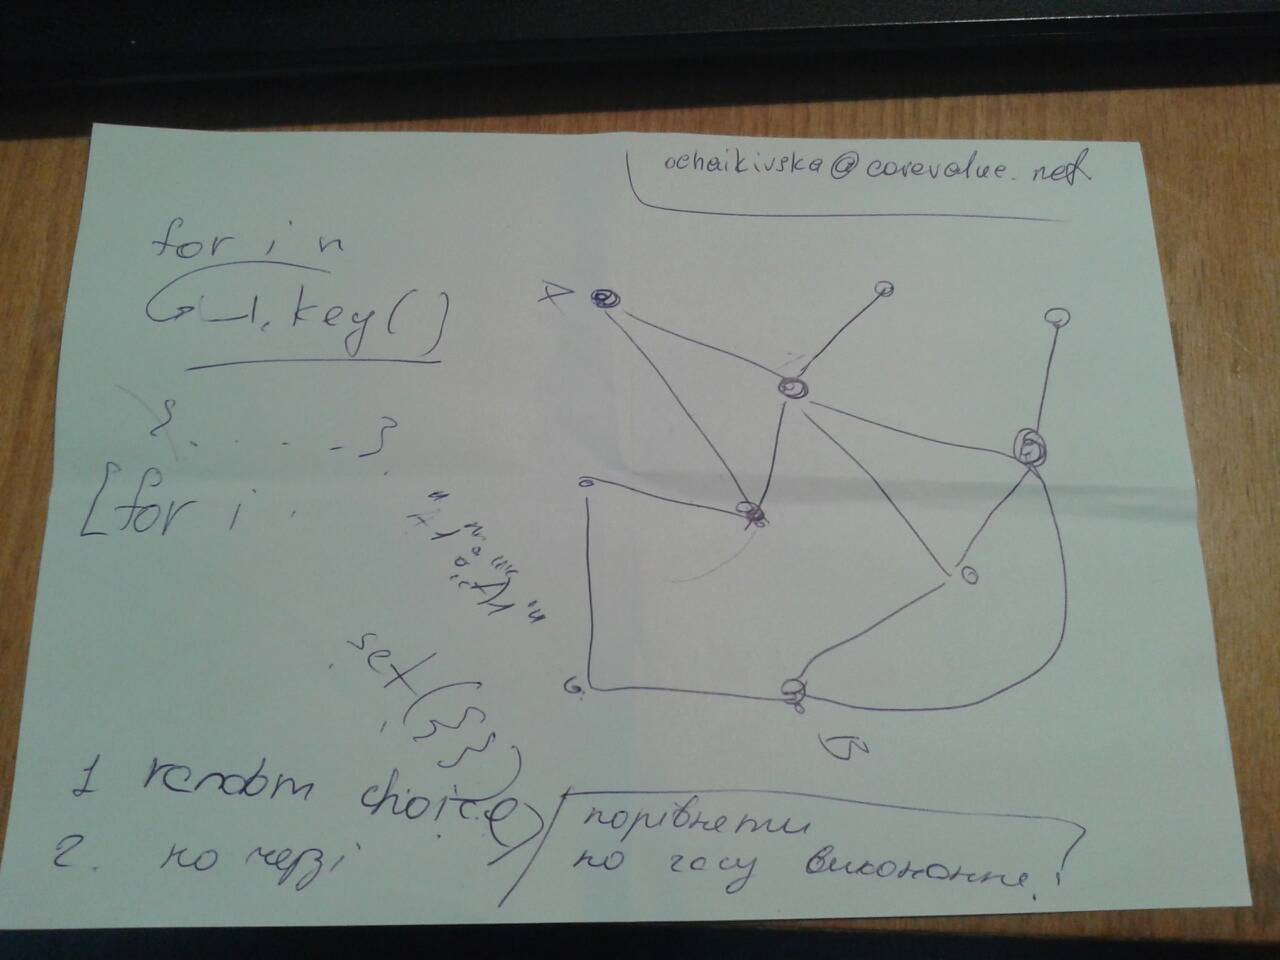 ochaikivska@corevalue.net
for i n
.key()
{. . . . . }
[for i .
set({})
1 random choice
2. по черзі
порівняти
по часу виконання!
A
B